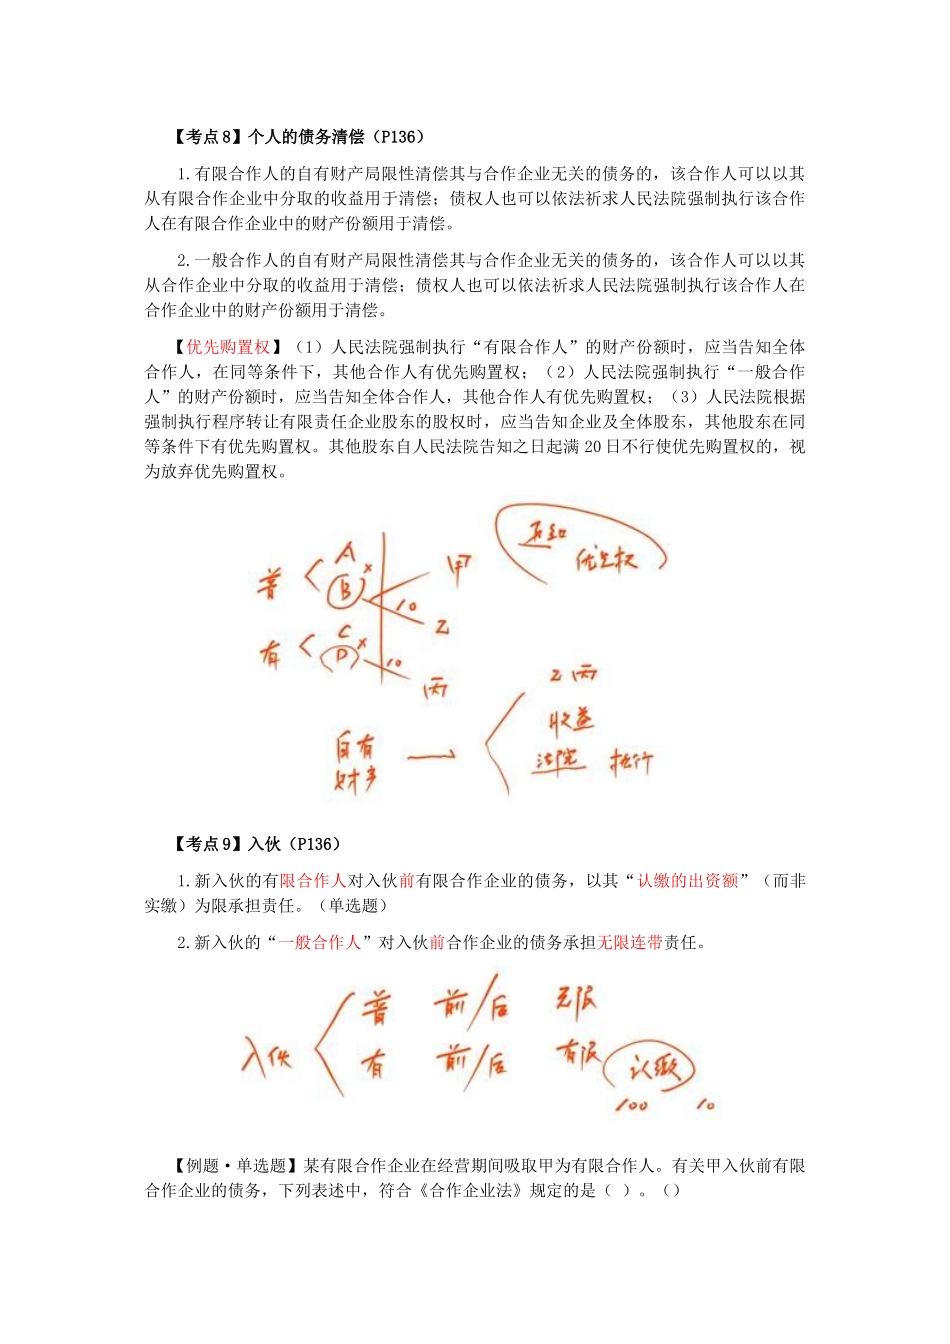 【考点 8】个人的债务清偿（P136）
1.有限合作人的自有财产局限性清偿其与合作企业无关的债务的，该合作人可以以其
从有限合作企业中分取的收益用于清偿；债权人也可以依法祈求人民法院强制执行该合作
人在有限合作企业中的财产份额用于清偿。
2.一般合作人的自有财产局限性清偿其与合作企业无关的债务的，该合作人可以以其
从合作企业中分取的收益用于清偿；债权人也可以依法祈求人民法院强制执行该合作人在
合作企业中的财产份额用于清偿。
【优先购置权】（1）人民法院强制执行“有限合作人”的财产份额时，应当告知全体
合作人，在同等条件下，其他合作人有优先购置权；（2）人民法院强制执行“一般合作
人”的财产份额时，应当告知全体合作人，其他合作人有优先购置权；（3）人民法院根据
强制执行程序转让有限责任企业股东的股权时，应当告知企业及全体股东，其他股东在同
等条件下有优先购置权。其他股东自人民法院告知之日起满 20 日不行使优先购置权的，视
为放弃优先购置权。
优先权
普 A 甲
B 10 乙
有 C
D 10 丙
乙 丙
收益
自有
财产
法院 执行
【考点 9】入伙（P136）
1.新入伙的有限合作人对入伙前有限合作企业的债务，以其“认缴的出资额”（而非
实缴）为限承担责任。（单选题）
2.新入伙的“一般合作人”对入伙前合作企业的债务承担无限连带责任。
普 前/后 无限
入伙
有 前/后 有限 认缴
100 10
【例题·单选题】某有限合作企业在经营期间吸取甲为有限合作人。有关甲入伙前有限
合作企业的债务，下列表述中，符合《合作企业法》规定的是（ ）。（）